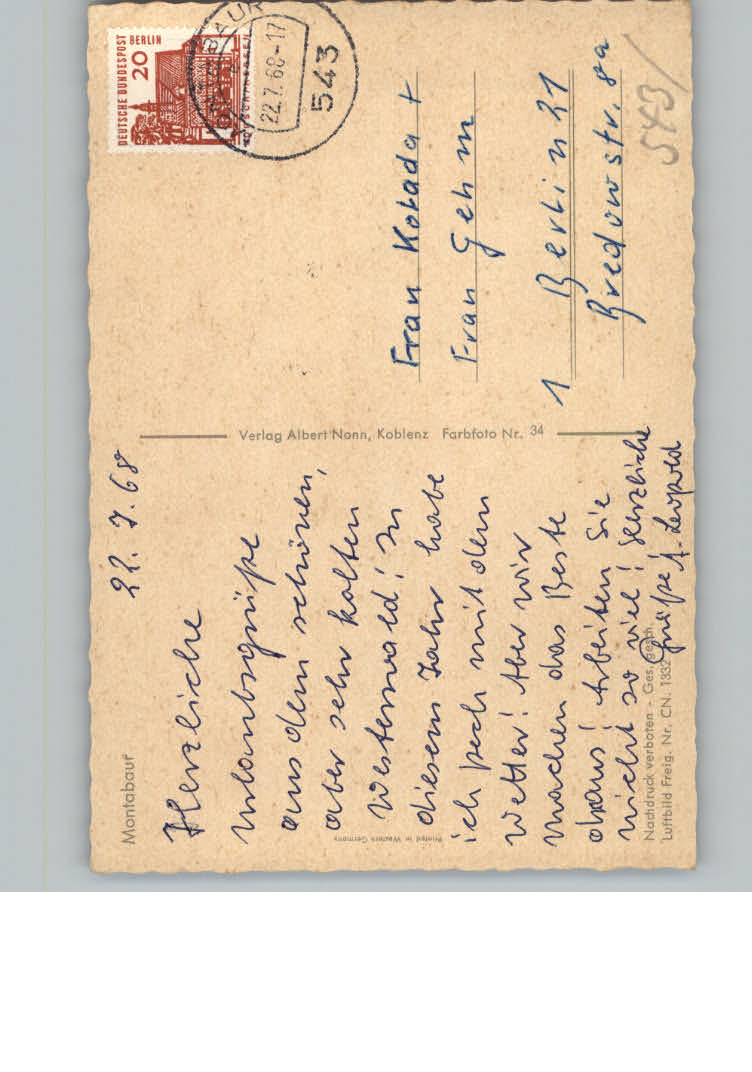 Montabaur
22.7.68
Herzliche
Urlaubsgrüße
aus dem schönen,
aber sehr kalten
Westerwald! In
diesem Jahr habe
ich Pech mit dem
Wetter! Aber wir
machen das Beste
draus! Arbeiten Sie
nicht so viel! Herzliche
Grüße A. Leopold
Nachdruck verboten - Ges. gesch.
Luftbild Freig. Nr. CN. 1332
Printed in Western Germany
Verlag Albert Nonn, Koblenz Farbfoto Nr. 34
DEUTSCHE BUNDESPOST BERLIN
20
543
22.7.68-17
Frau Kokadat
Frau Gehm
1 Berlin 21
Bredowstr. 8a
543/